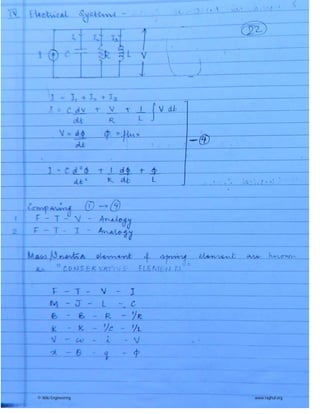 IV Electrical Systems -
22
I₁ I₂ I₃
I C R L V
I = I₁ + I₂ + I₃
I = C dv/dt + V/R + 1/L ∫ V dt
V = dΦ/dt Φ = flux
— ④
I = C d²Φ/dt² + 1/R dΦ/dt + Φ/L
Comparing ① → ④
1 F - T - V - Analogy
2 F - T - I - Analogy
Mass/Inertia element & spring element are known
as "CONSERVATIVE ELEMENTS"
F - T - V - I
M - J - L - C
B - B - R - 1/R
K - K - 1/C - 1/L
V - ω - i - V
x - θ - q - Φ